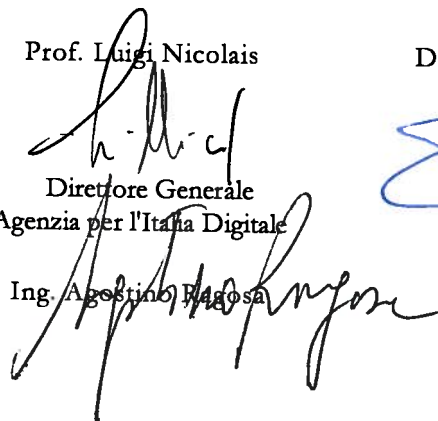 Prof. Luigi Nicolais
D
Direttore Generale
Agenzia per l'Italia Digitale
Ing. Agostino Ragosa
Agostino Ragosa